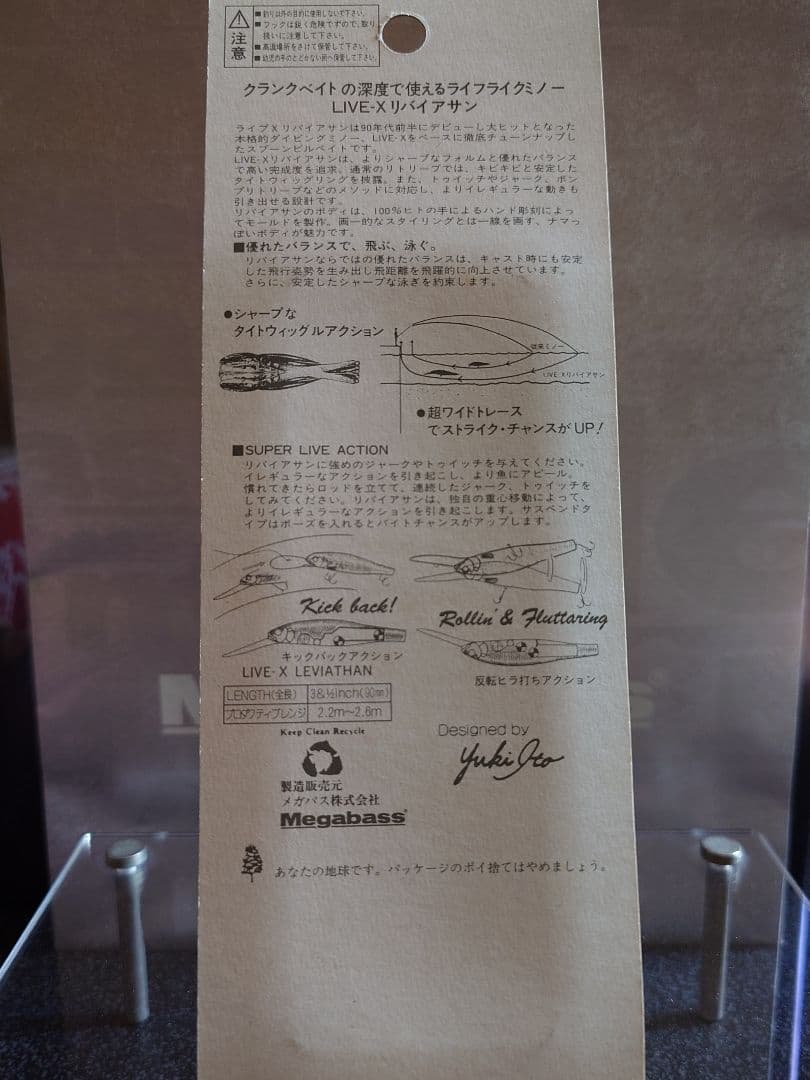 注意
■釣り以外の目的に使用しないで下さい。
■フックは鋭く危険ですので、取り
扱いに注意して下さい。
■高温場所をさけて保管して下さい。
■幼児の手のとどかない所へ保管して下さい。
クランクベイトの深度で使えるライフライクミノー
LIVE-Xリバイアサン
ライブXリバイアサンは90年代前半にデビューし大ヒットとなった
本格的ダイビングミノー、LIVE-Xをベースに徹底チューンナップし
たスプーンビルベイトです。
LIVE-Xリバイアサンは、よりシャープなフォルムと優れたバランス
で高い完成度を追求。通常のリトリーブでは、キビキビと安定した
タイトウィッグリングを披露。また、トゥイッチやジャーク、ポン
プリトリーブなどのメソッドに対応し、よりイレギュラーな動きも
引き出せる設計です。
リバイアサンのボディは、100%ヒトの手によるハンド彫刻によっ
てモールドを製作。画一的なスタイリングとは一線を画す、ナマっ
ぽいボディが魅力です。
■優れたバランスで、飛ぶ、泳ぐ。
リバイアサンならではの優れたバランスは、キャスト時にも安定
した飛行姿勢を生み出し飛距離を飛躍的に向上させています。
さらに、安定したシャープな泳ぎを約束します。
●シャープな
タイトウィッグルアクション
従来ミノー
LIVE-Xリバイアサン
●超ワイドトレース
でストライク・チャンスがUP!
■SUPER LIVE ACTION
リバイアサンに強めのジャークやトゥイッチを与えてください。
イレギュラーなアクションを引き起こし、より魚にアピール。
慣れてきたらロッドを立てて、連続したジャーク、トゥイッチを
してみてください。リバイアサンは、独自の重心移動によって、
よりイレギュラーなアクションを引き起こします。サスペンドタ
イプはポーズを入れるとバイトチャンスがアップします。
Kick back!
Rollin' & Fluttaring
キックバックアクション
反転ヒラ打ちアクション
LIVE-X LEVIATHAN
LENGTH(全長) 3&½inch(90mm)
プロダクティブレンジ 2.2m〜2.6m
Keep Clean Recycle
Designed by
Yuki Ito
製造販売元
メガバス株式会社
Megabass
あなたの地球です。パッケージのポイ捨てはやめましょう。